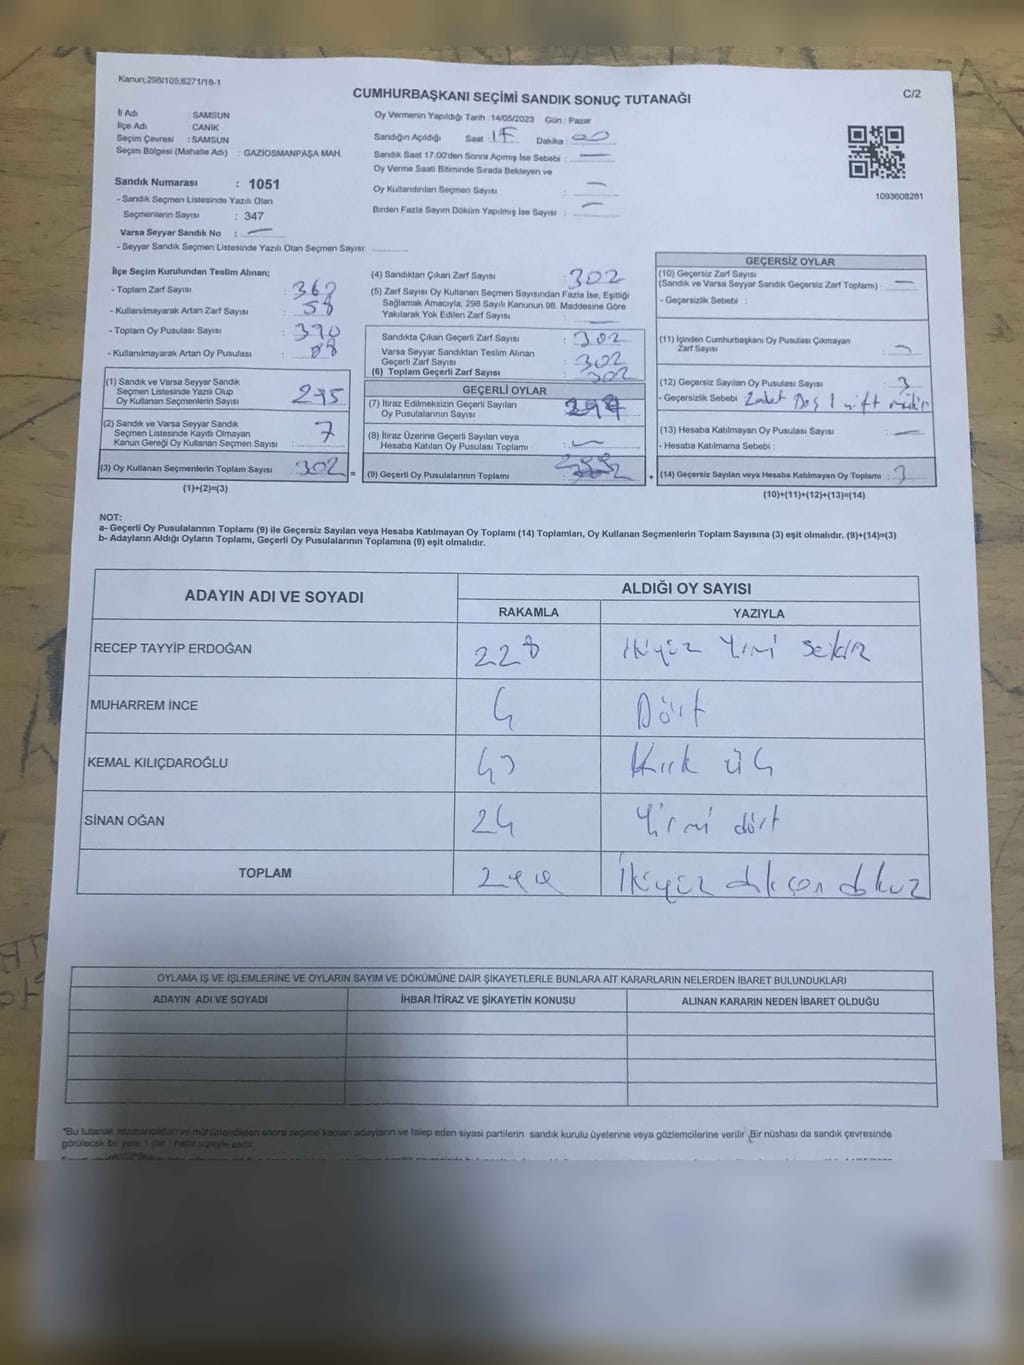 Kanun;298/105;6271/18-1
CUMHURBAŞKANI SEÇİMİ SANDIK SONUÇ TUTANAĞI
C/2
İl Adı : SAMSUN
İlçe Adı CANİK
Seçim Çevresi : SAMSUN
Seçim Bölgesi (Mahalle Adı) : GAZİOSMANPAŞA MAH.
Sandık Numarası : 1051
- Sandık Seçmen Listesinde Yazılı Olan
Seçmenlerin Sayısı : 347
Varsa Seyyar Sandık No : —
- Seyyar Sandık Seçmen Listesinde Yazılı Olan Seçmen Sayısı:
Oy Vermenin Yapıldığı Tarih : 14/05/2023 Gün : Pazar
Sandığın Açıldığı Saat : 17 Dakika : 00
Sandık Saat 17.00'den Sonra Açımış İse Sebebi : —
Oy Verme Saati Bitiminde Sırada Bekleyen ve
Oy Kullandırılan Seçmen Sayısı : —
Birden Fazla Sayım Döküm Yapılmış İse Sayısı : —
1093608281
İlçe Seçim Kurulundan Teslim Alınan;
- Toplam Zarf Sayısı :
- Kullanılmayarak Artan Zarf Sayısı : 58
- Toplam Oy Pusulası Sayısı : 390
- Kullanılmayarak Artan Oy Pusulası : 88
(1) Sandık ve Varsa Seyyar Sandık
Seçmen Listesinde Yazılı Olup
Oy Kullanan Seçmenlerin Sayısı : 295
(2) Sandık ve Varsa Seyyar Sandık
Seçmen Listesinde Kayıtlı Olmayan
Kanun Gereği Oy Kullanan Seçmen Sayısı : 7
(3) Oy Kullanan Seçmenlerin Toplam Sayısı 302 =
(1)+(2)=(3)
(4) Sandıktan Çıkan Zarf Sayısı : 302
(5) Zarf Sayısı Oy Kullanan Seçmen Sayısından Fazla İse, Eşitliği
Sağlamak Amacıyla, 298 Sayılı Kanunun 98. Maddesine Göre
Yakılarak Yok Edilen Zarf Sayısı : —
Sandıkta Çıkan Geçerli Zarf Sayısı : 302
Varsa Seyyar Sandıktan Teslim Alınan
Geçerli Zarf Sayısı : 302
(6) Toplam Geçerli Zarf Sayısı : 302
GEÇERLİ OYLAR
(7) İtiraz Edilmeksizin Geçerli Sayılan
Oy Pusulalarının Sayısı :
(8) İtiraz Üzerine Geçerli Sayılan veya
Hesaba Katılan Oy Pusulası Toplamı : —
(9) Geçerli Oy Pusulalarının Toplamı : +
GEÇERSİZ OYLAR
(10) Geçersiz Zarf Sayısı
(Sandık ve Varsa Seyyar Sandık Geçersiz Zarf Toplamı) : —
- Geçersizlik Sebebi :
(11) İçinden Cumhurbaşkanı Oy Pusulası Çıkmayan
Zarf Sayısı : —
(12) Geçersiz Sayılan Oy Pusulası Sayısı : 3
- Geçersizlik Sebebi 2 adet Boş 1 çift mühür
(13) Hesaba Katılmayan Oy Pusulası Sayısı : —
- Hesaba Katılmama Sebebi :
(14) Geçersiz Sayılan veya Hesaba Katılmayan Oy Toplamı : 3
(10)+(11)+(12)+(13)=(14)
NOT:
a- Geçerli Oy Pusulalarının Toplamı (9) ile Geçersiz Sayılan veya Hesaba Katılmayan Oy Toplamı (14) Toplamları, Oy Kullanan Seçmenlerin Toplam Sayısına (3) eşit olmalıdır. (9)+(14)=(3)
b- Adayların Aldığı Oyların Toplamı, Geçerli Oy Pusulalarının Toplamına (9) eşit olmalıdır.
ADAYIN ADI VE SOYADI
ALDIĞI OY SAYISI
RAKAMLA YAZIYLA
RECEP TAYYİP ERDOĞAN 228 ikiyüz Yirmi sekiz
MUHARREM İNCE 4 Dört
KEMAL KILIÇDAROĞLU 43 Kırk üç
SİNAN OĞAN 24 Yirmi dört
TOPLAM 299 ikiyüz doksan dokuz
OYLAMA İŞ VE İŞLEMLERİNE VE OYLARIN SAYIM VE DÖKÜMÜNE DAİR ŞİKAYETLERLE BUNLARA AİT KARARLARIN NELERDEN İBARET BULUNDUKLARI
ADAYIN ADI VE SOYADI İHBAR İTİRAZ VE ŞİKAYETİN KONUSU ALINAN KARARIN NEDEN İBARET OLDUĞU
"Bu tutanak imzalandıktan ve mühürlendikten sonra seçime katılan adayların ve talep eden siyasi partilerin sandık kurulu üyelerine veya gözlemcilerine verilir. Bir nüshası da sandık çevresinde
görülecek bir yere 1 (bir) hafta süreyle asılır.